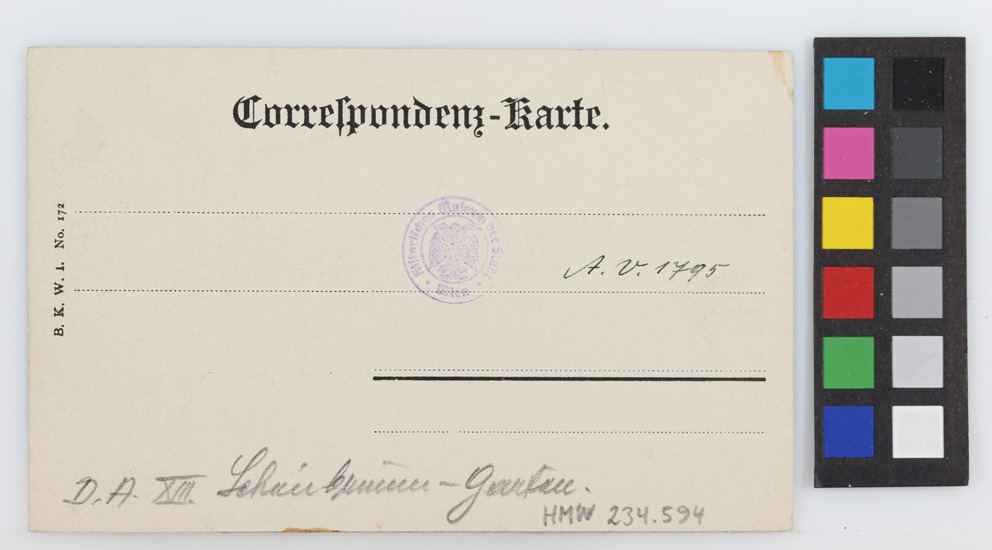 Correspondenz-Karte.
B. K. W. I. No. 172
Historisches Museum der Stadt
Wien
A. V. 1795
D. A. XIII. Schönbrunn - Garten.
HMW 234.594